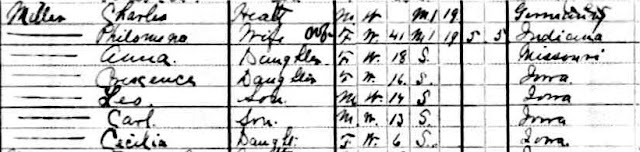 Miller Charles Head M. W. M1 19 Germany
Philomena Wife F. W. 41 M1 19 5 5 Indiana
Anna Daughter F. W. 18 S. Missouri
Daughter F. W. 16 S. Iowa
Leo. Son. M. W. 14 S. Iowa
Carl. Son. M. W. 13 S. Iowa
Cecilia Daught. F W. 6 S. Iowa